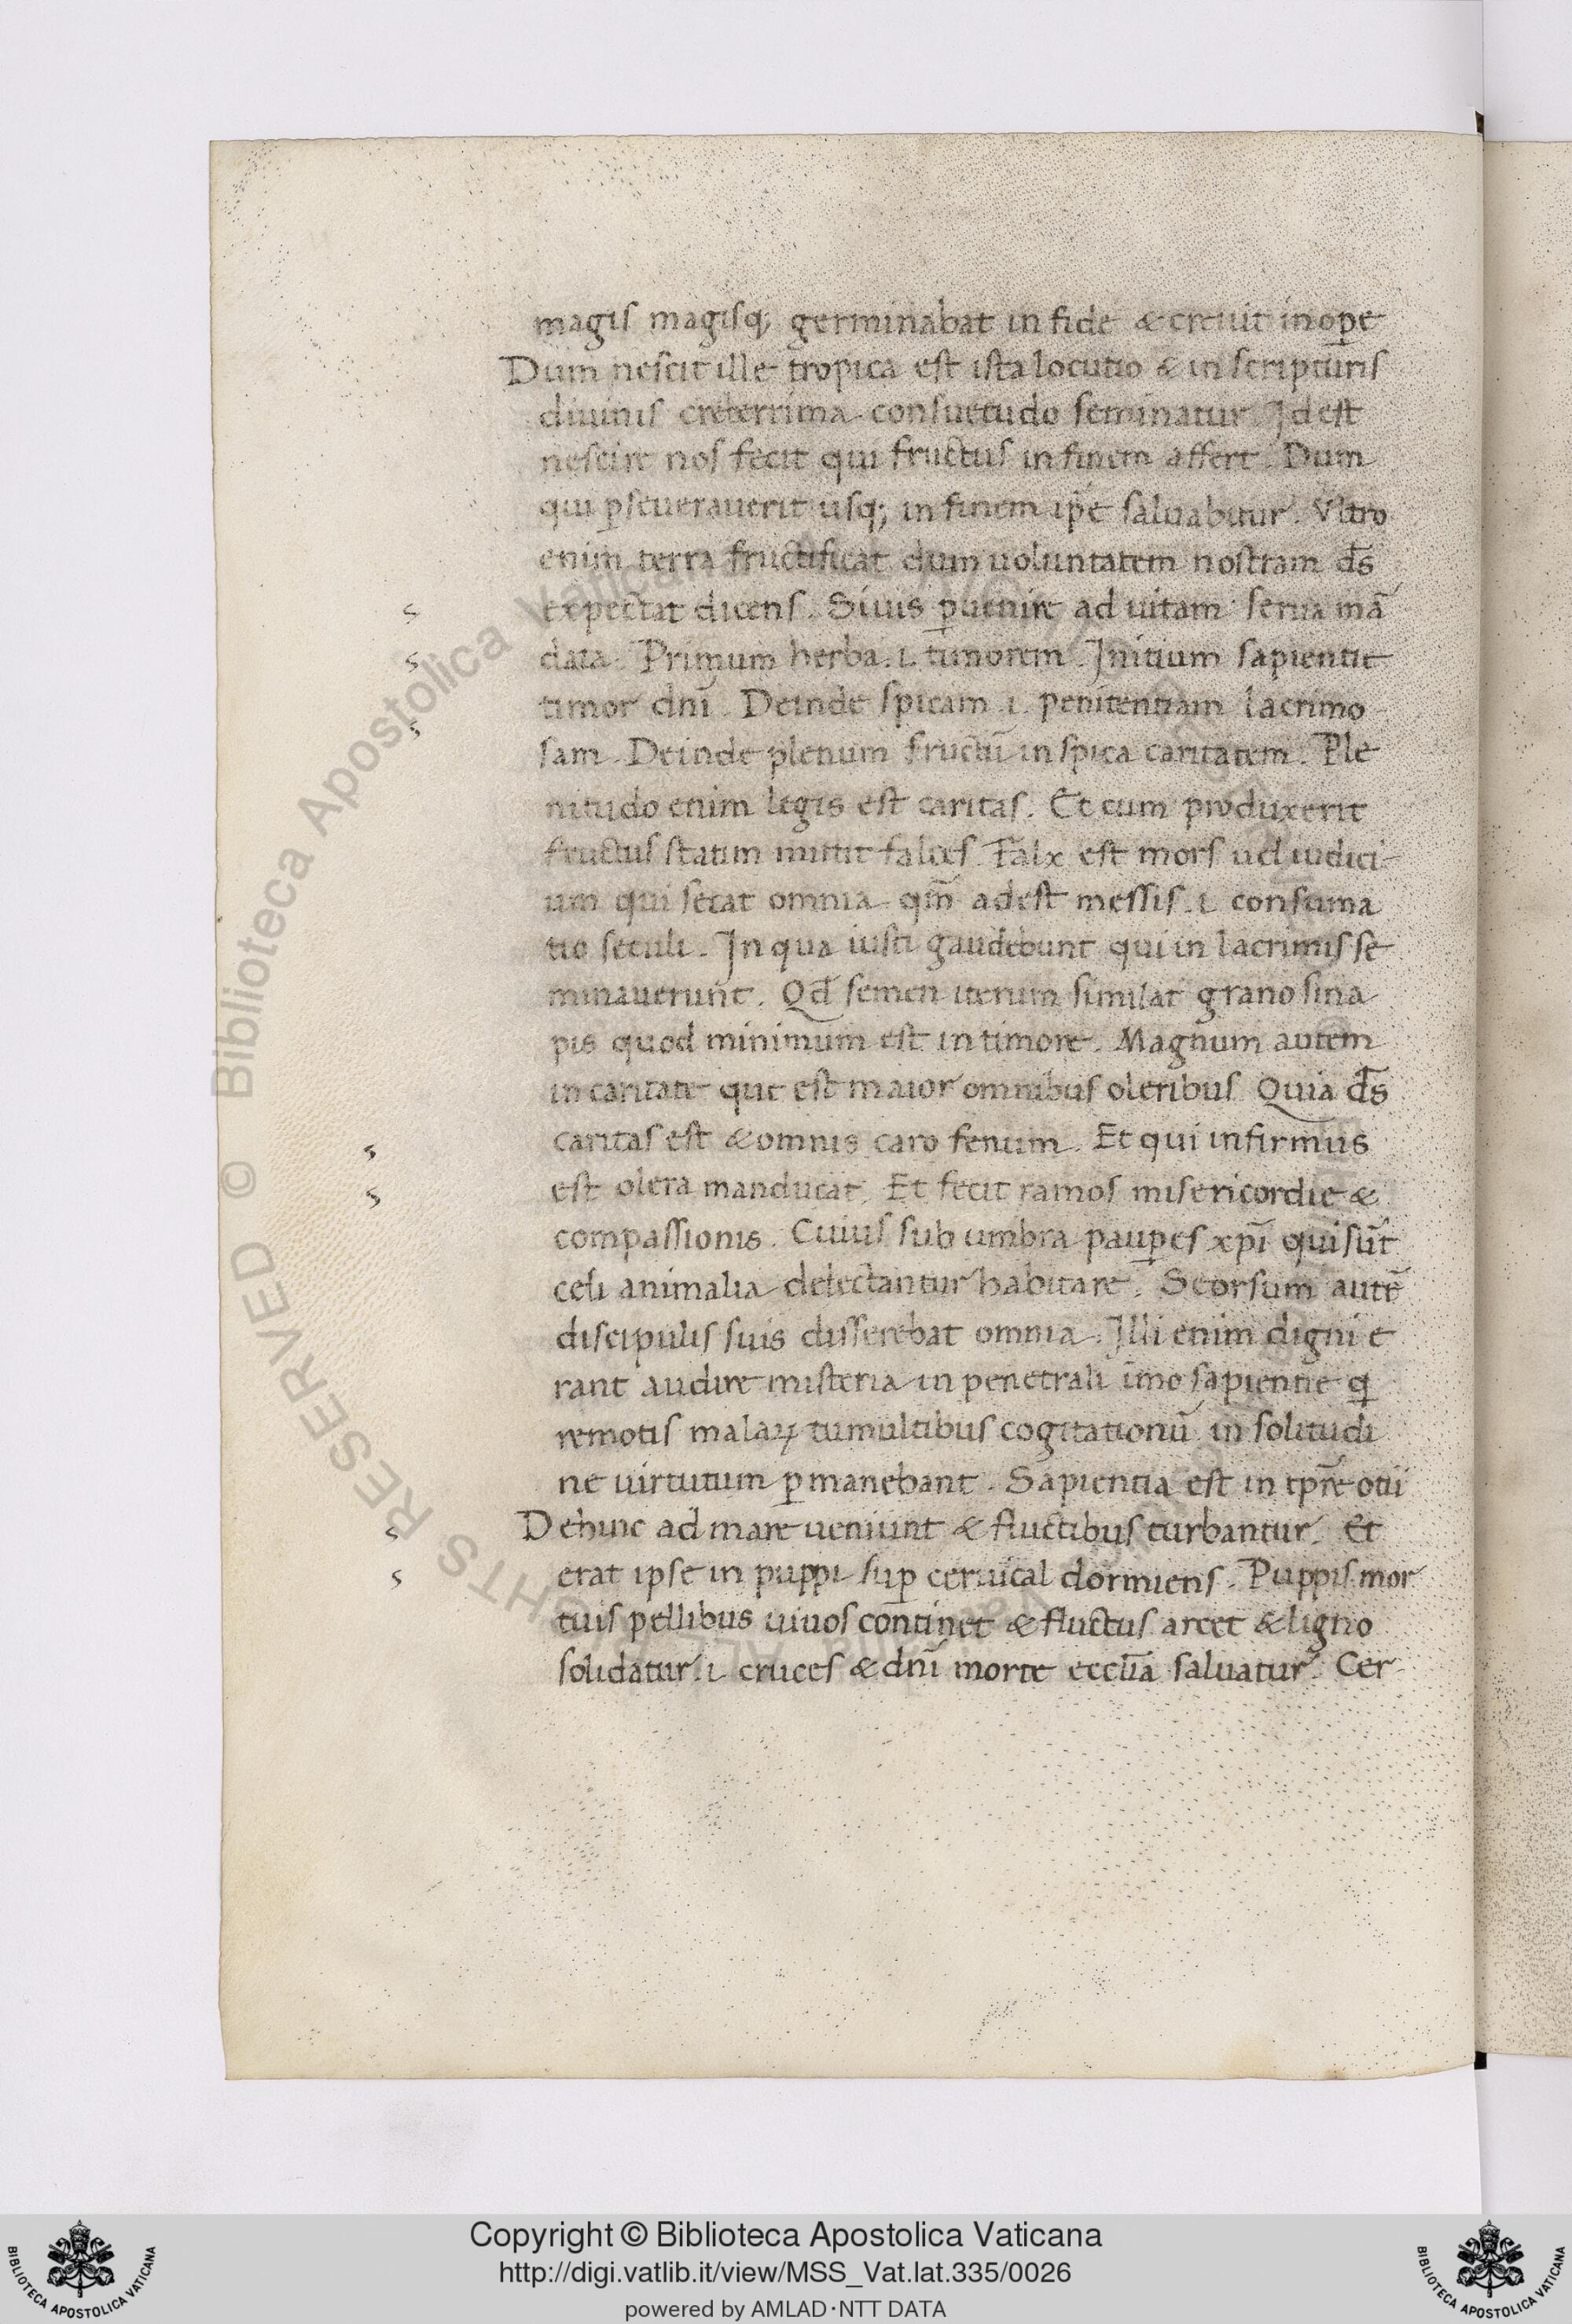 magis magisq; germinabat in fide & creuit in ope
Dum nescit ille tropica est ista locutio & in scripturis
diuinis creterrima consuetudo seminatur. Idest
nescire nos fecit qui fructus in finem affert. Dum
qui pseuerauerit usq; in finem ipē saluabitur. Vltro
enim terra fructificat dum uoluntatem nostram ds̄
expectat dicens. Siuis puenire ad uitam serua mā
data. Primum herba .i. timorem. Initium sapientie
timor dnī. Deinde spicam .i. penitentiam lacrimo
sam. Deinde plenum fructū in spica caritatem. Ple
nitudo enim legis est caritas. Et cum produxerit
fructus statim mittit falces. Falx est mors uel iudici
um qui secat omnia qm̄ adest messis .i. consuma
tio seculi. In qua iusti gaudebunt qui in lacrimis se
minauerunt. Qd̄ semen iterum similat grano sina
pis quod minimum est in timore. Magnum autem
in caritate que est maior omnibus oleribus Quia ds̄
caritas est & omnis caro fenum. Et qui infirmus
est olera manducat. Et fecit ramos misericordie &
compassionis. Cuius sub umbra paupes xpī qui sūt
celi animalia delectantur habitare. Seorsum autē
discipulis suis disserebat omnia. Illi enim digni e
rant audire misteria in penetrali imo sapientie q
remotis malaꝝ tumultibus cogitationū in solitudi
ne uirtutum pmanebant. Sapientia est in tpr̄e otii
Dehinc ad mare ueniunt & fluctibus turbantur. Et
erat ipse in puppi sup ceruical dormiens. Puppis mor
tuis pellibus uiuos continet & fluctus arcet & ligno
solidatur .i. cruces & dnī morte eccl̄ia saluatur. Cer
© Biblioteca Apostolica Vaticana
RIGHTS RESERVED
Copyright © Biblioteca Apostolica Vaticana
http://digi.vatlib.it/view/MSS_Vat.lat.335/0026
powered by AMLAD·NTT DATA
BIBLIOTECA APOSTOLICA VATICANA
BIBLIOTECA APOSTOLICA VATICANA